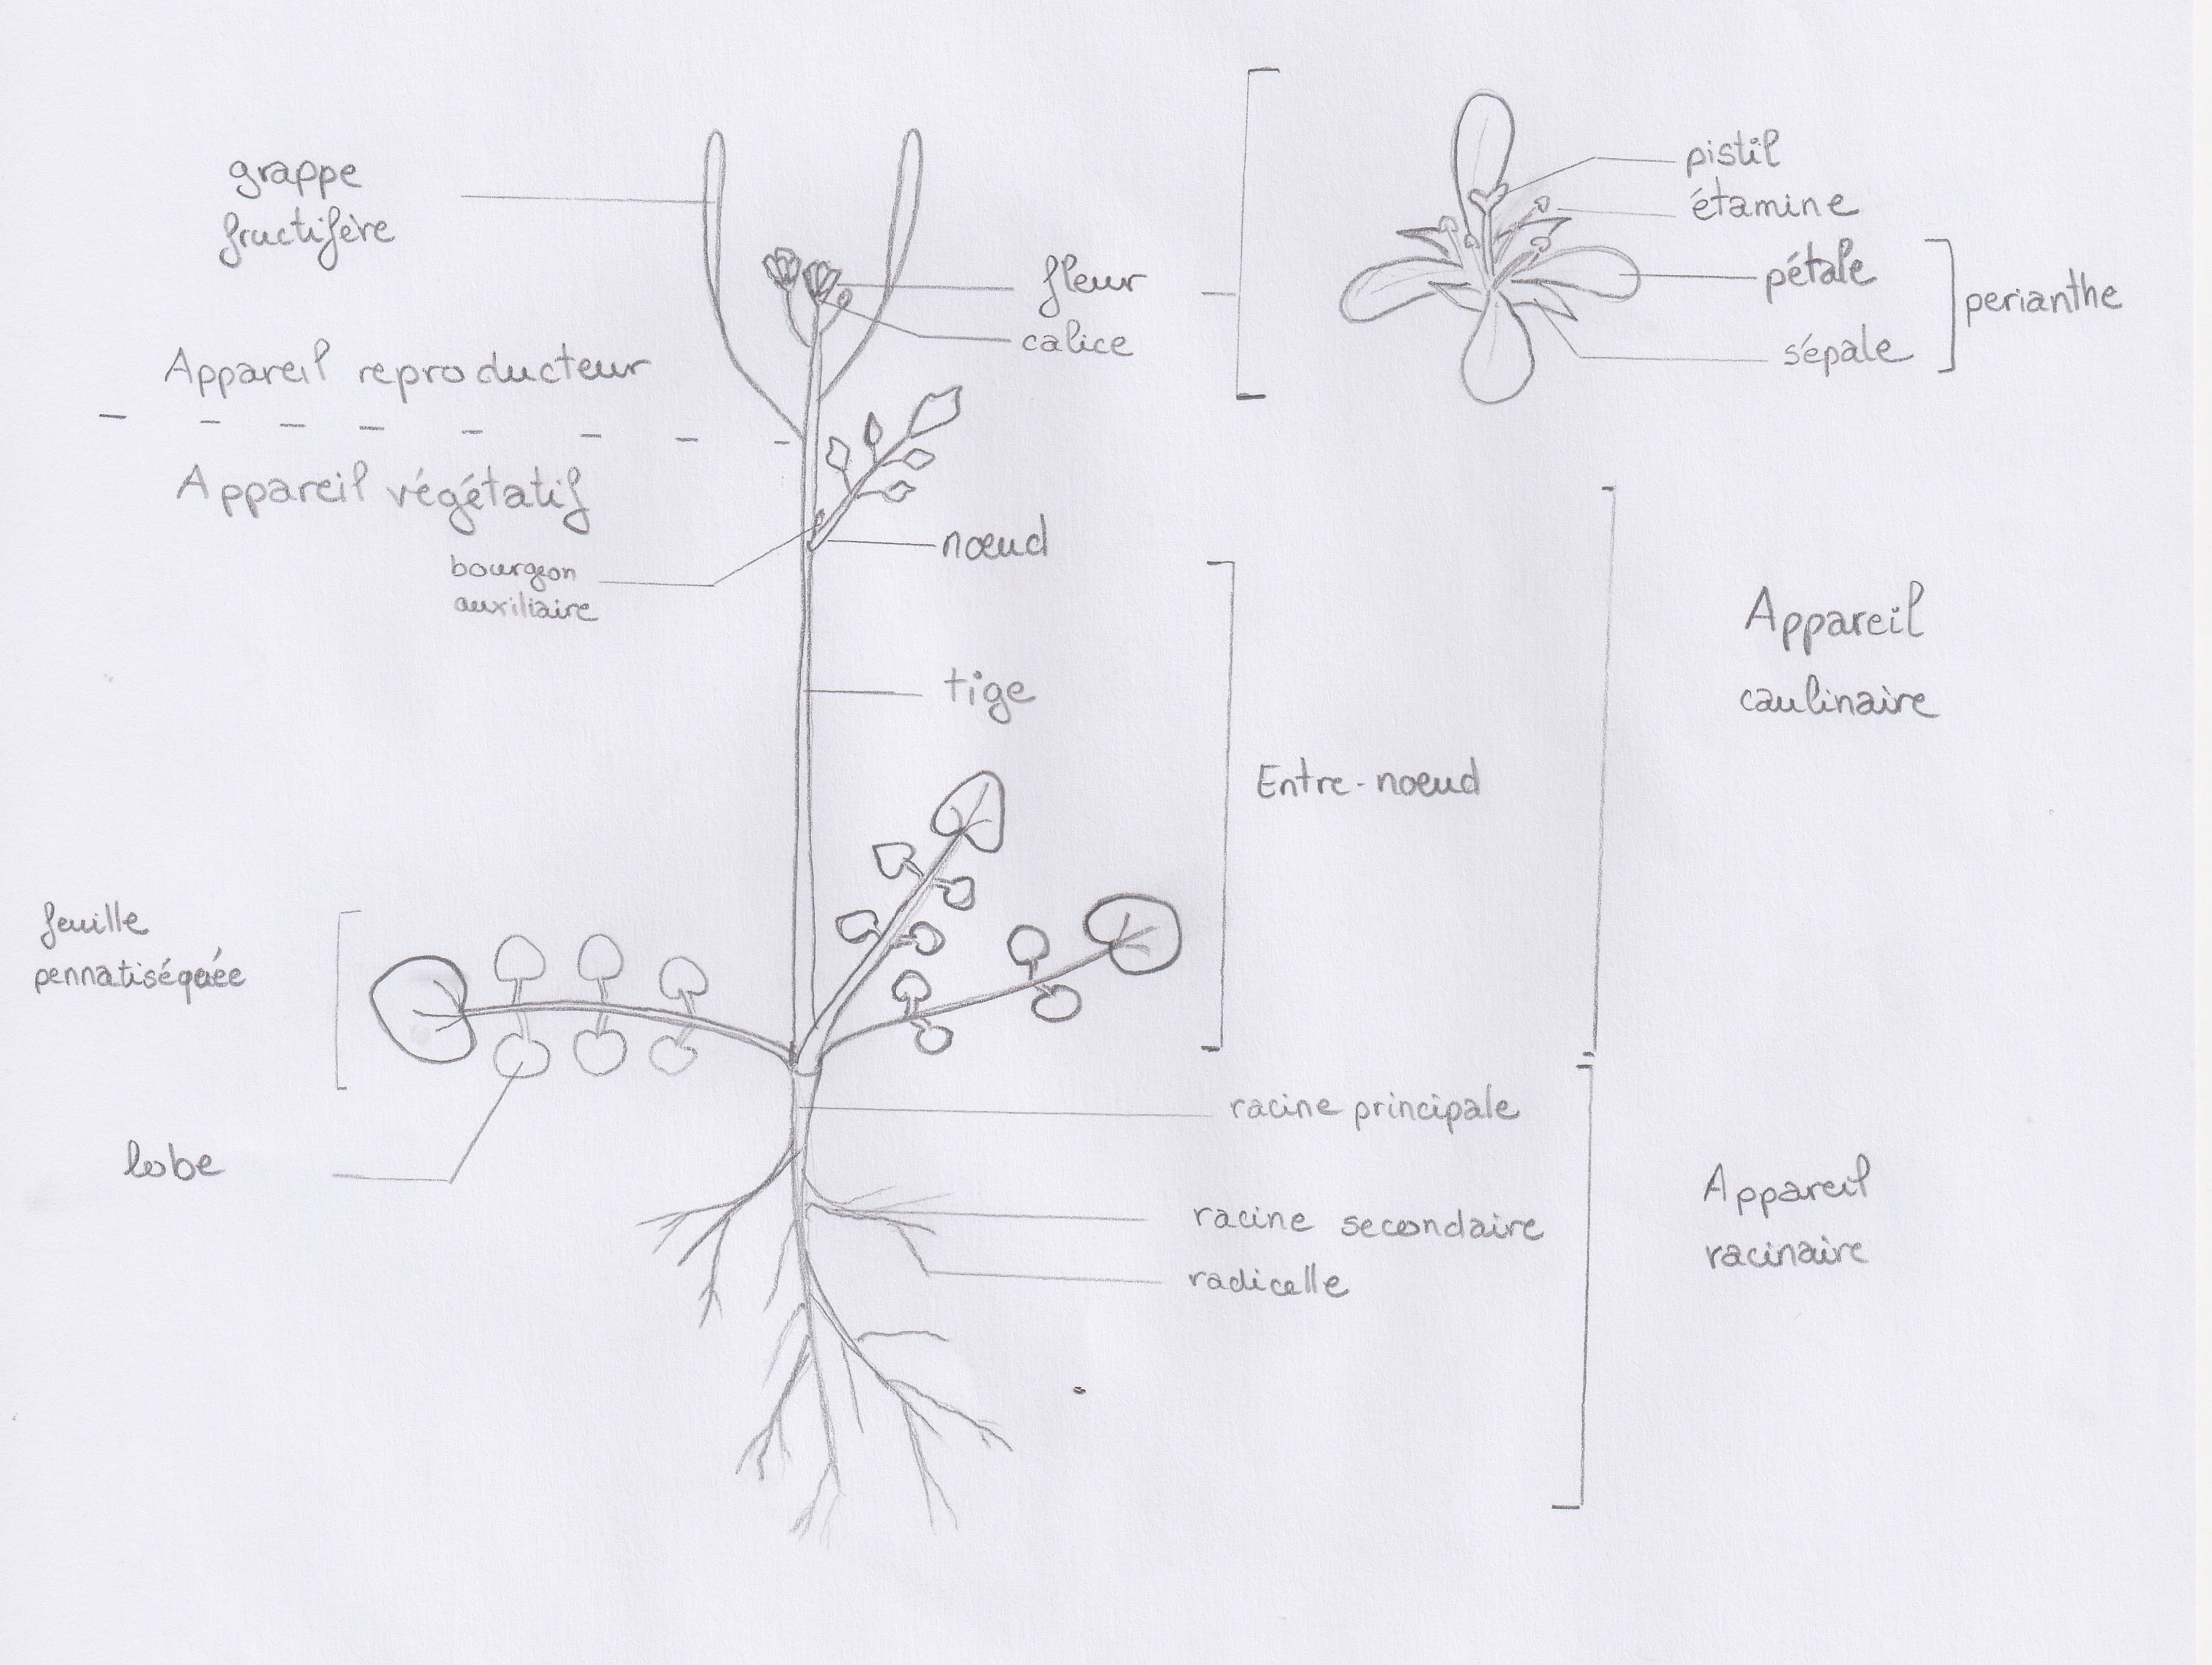 grappe
fructifère
pistil
étamine
pétale
sépale
perianthe
fleur
calice
Appareil reproducteur
Appareil végétatif
bourgeon
auxiliaire
nœud
tige
Entre-nœud
Appareil
caulinaire
feuille
lobe
racine principale
racine secondaire
radicelle
Appareil
racinaire